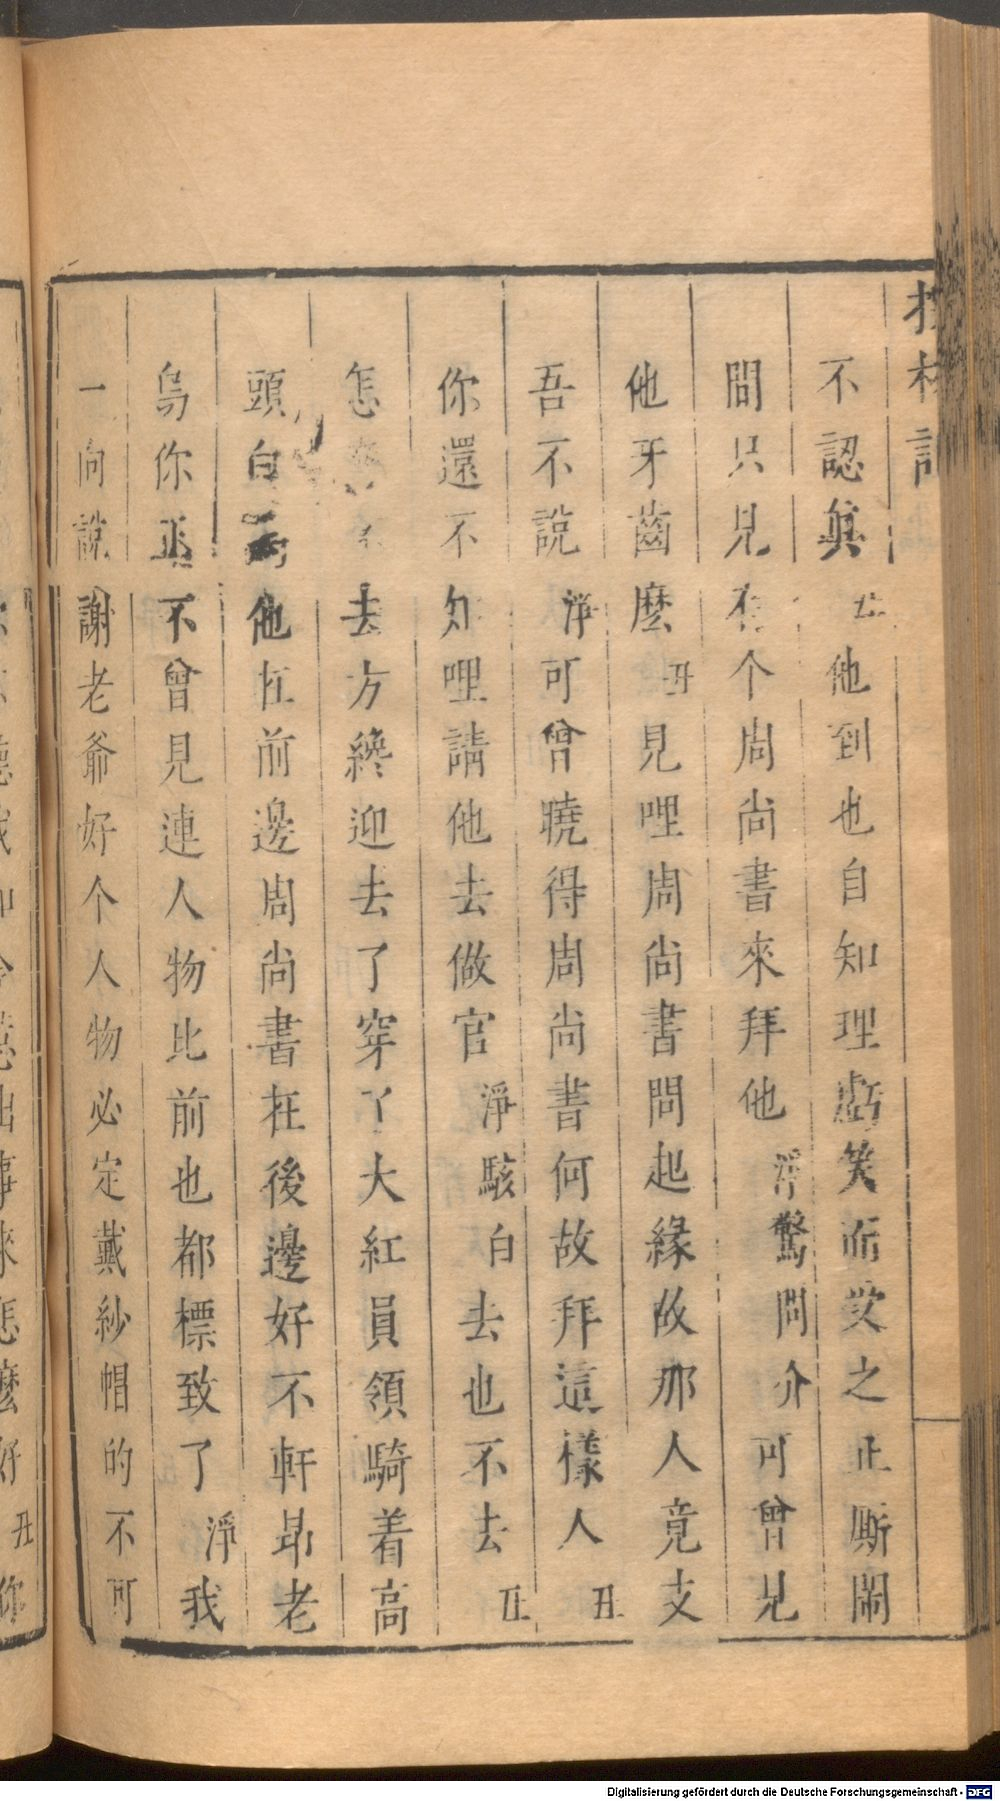 不認眞丑他到也自知理虧笑而受之正厮鬧
間只見有个周尚書來拜他淨驚問介可曾見
他牙齒麽丑見哩周尚書問起緣故那人竟支
吾不說淨可曾曉得周尚書何故拜這樣人丑
你還不知哩請他去做官淨駭白去也不去丑
怎去方纔迎去了穿了大紅員領騎着高
頭白馬他在前邊周尚書在後邊好不軒昂老
烏你正不曾見連人物比前也都標致了淨我
一向說謝老爺好个人物必定戴紗帽的不可
Digitalisierung gefördert durch die Deutsche Forschungsgemeinschaft - DFG